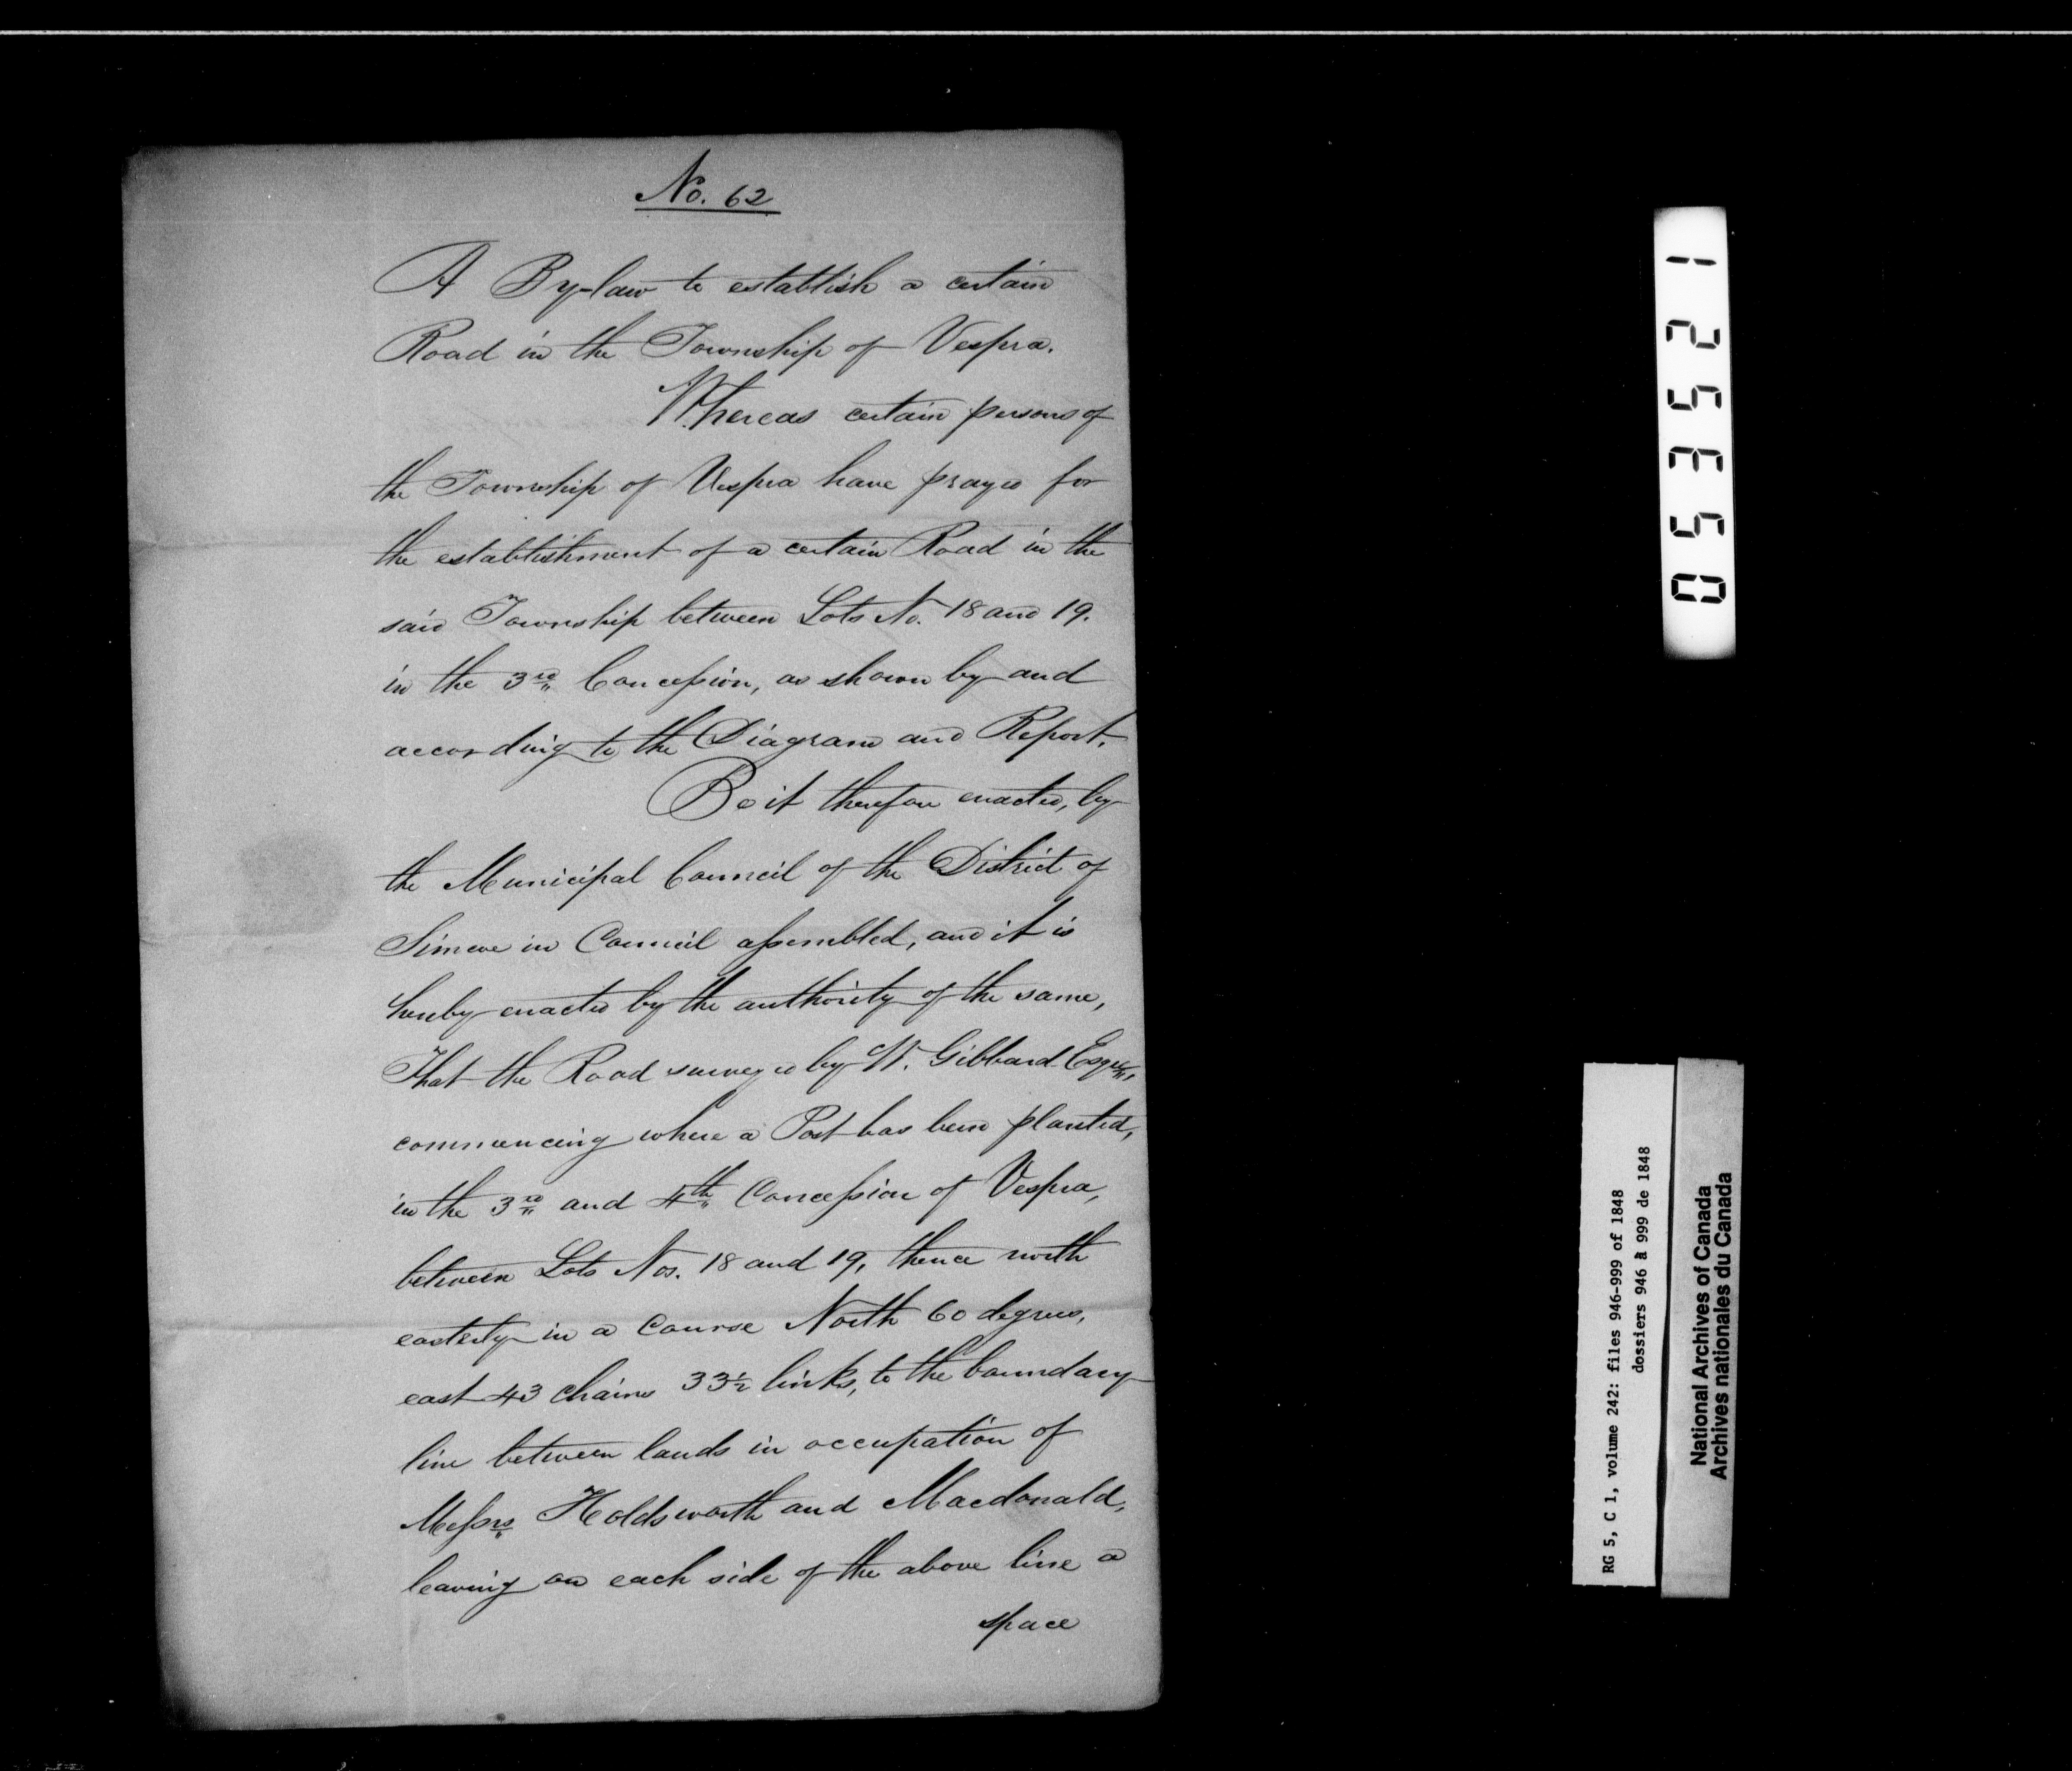 No. 62
A By-law to establish a certain
Road in the Township of Vespra.
Whereas certain persons of
the Township of Vespra have prayed for
the establishment of a certain Road in the
said Township between Lots No. 18 and 19.
in the 3rd Concession, as shown by and
according to the Diagram and Report.
Be it therefore enacted, by
the Municipal Council of the District of
Simcoe in Council assembled, and it is
hereby enacted by the authority of the same,
That the Road surveyed by W. Gibbard Esqre,
commencing where a Post has been planted,
in the 3rd and 4th Concession of Vespra,
between Lots Nos. 18 and 19, thence north
easterly in a Course North 60 degrees,
east 43 chains 33½ links, to the boundary
line between lands in occupation of
Messrs Holdsworth and Macdonald,
leaving on each side of the above line a
space
053521
RG 5, C 1, volume 242: files 946-999 of 1848
dossiers 946 à 999 de 1848
National Archives of Canada
Archives nationales du Canada